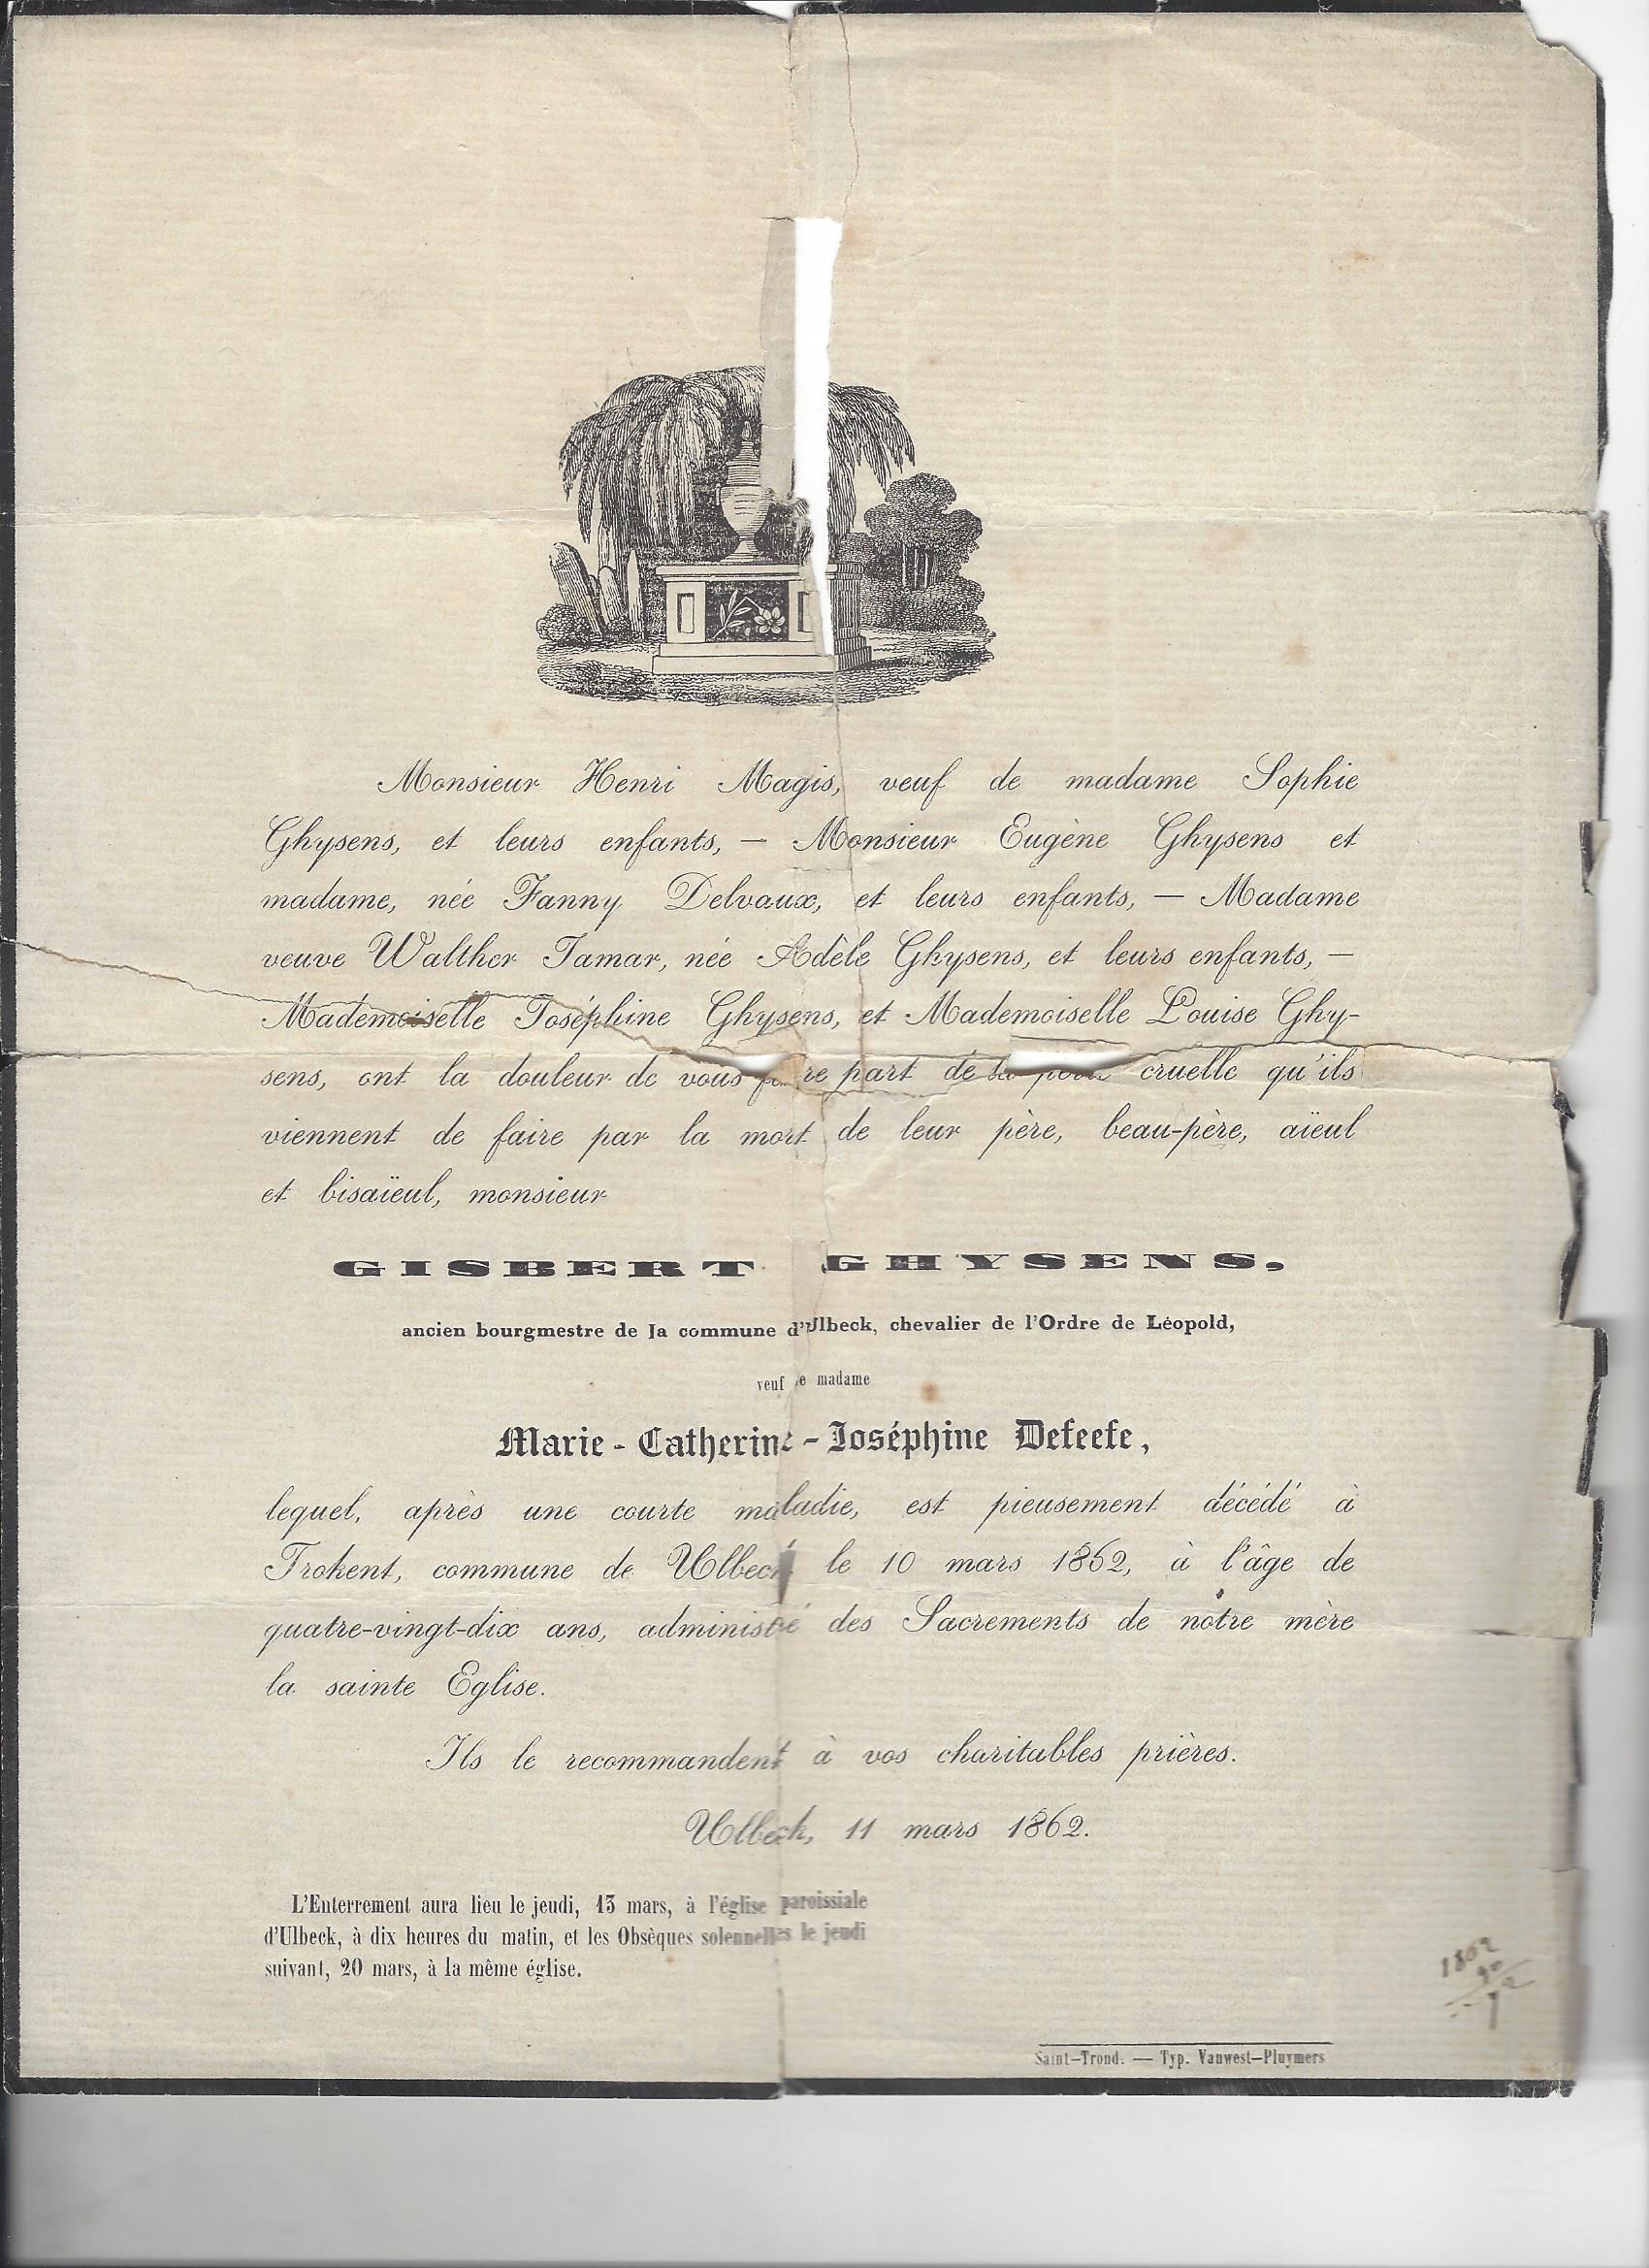 Monsieur Henri Magis, veuf de madame Sophie
Ghysens, et leurs enfants, — Monsieur Eugène Ghysens et
madame, née Fanny Delvaux, et leurs enfants, — Madame
veuve Walther Jamar, née Adèle Ghysens, et leurs enfants, —
Mademoiselle Joséphine Ghysens, et Mademoiselle Louise Ghy-
sens, ont la douleur de vous faire part de la perte cruelle qu'ils
viennent de faire par la mort de leur père, beau-père, aïeul
et bisaïeul, monsieur
GISBERT GHYSENS,
ancien bourgmestre de la commune d'Ulbeck, chevalier de l'Ordre de Léopold,
veuf de madame
Marie - Catherine - Joséphine Defeefe,
lequel, après une courte maladie, est pieusement décédé à
Trokent, commune de Ulbeck le 10 mars 1862, à l'âge de
quatre-vingt-dix ans, administré des Sacrements de notre mère
la sainte Eglise.
Ils le recommandent à vos charitables prières.
Ulbeck, 11 mars 1862.
L'Enterrement aura lieu le jeudi, 13 mars, à l'église paroissiale
d'Ulbeck, à dix heures du matin, et les Obsèques solennelles le jeudi
suivant, 20 mars, à la même église.
1862
90
Saint-Trond. — Typ. Vanwest-Pluymers